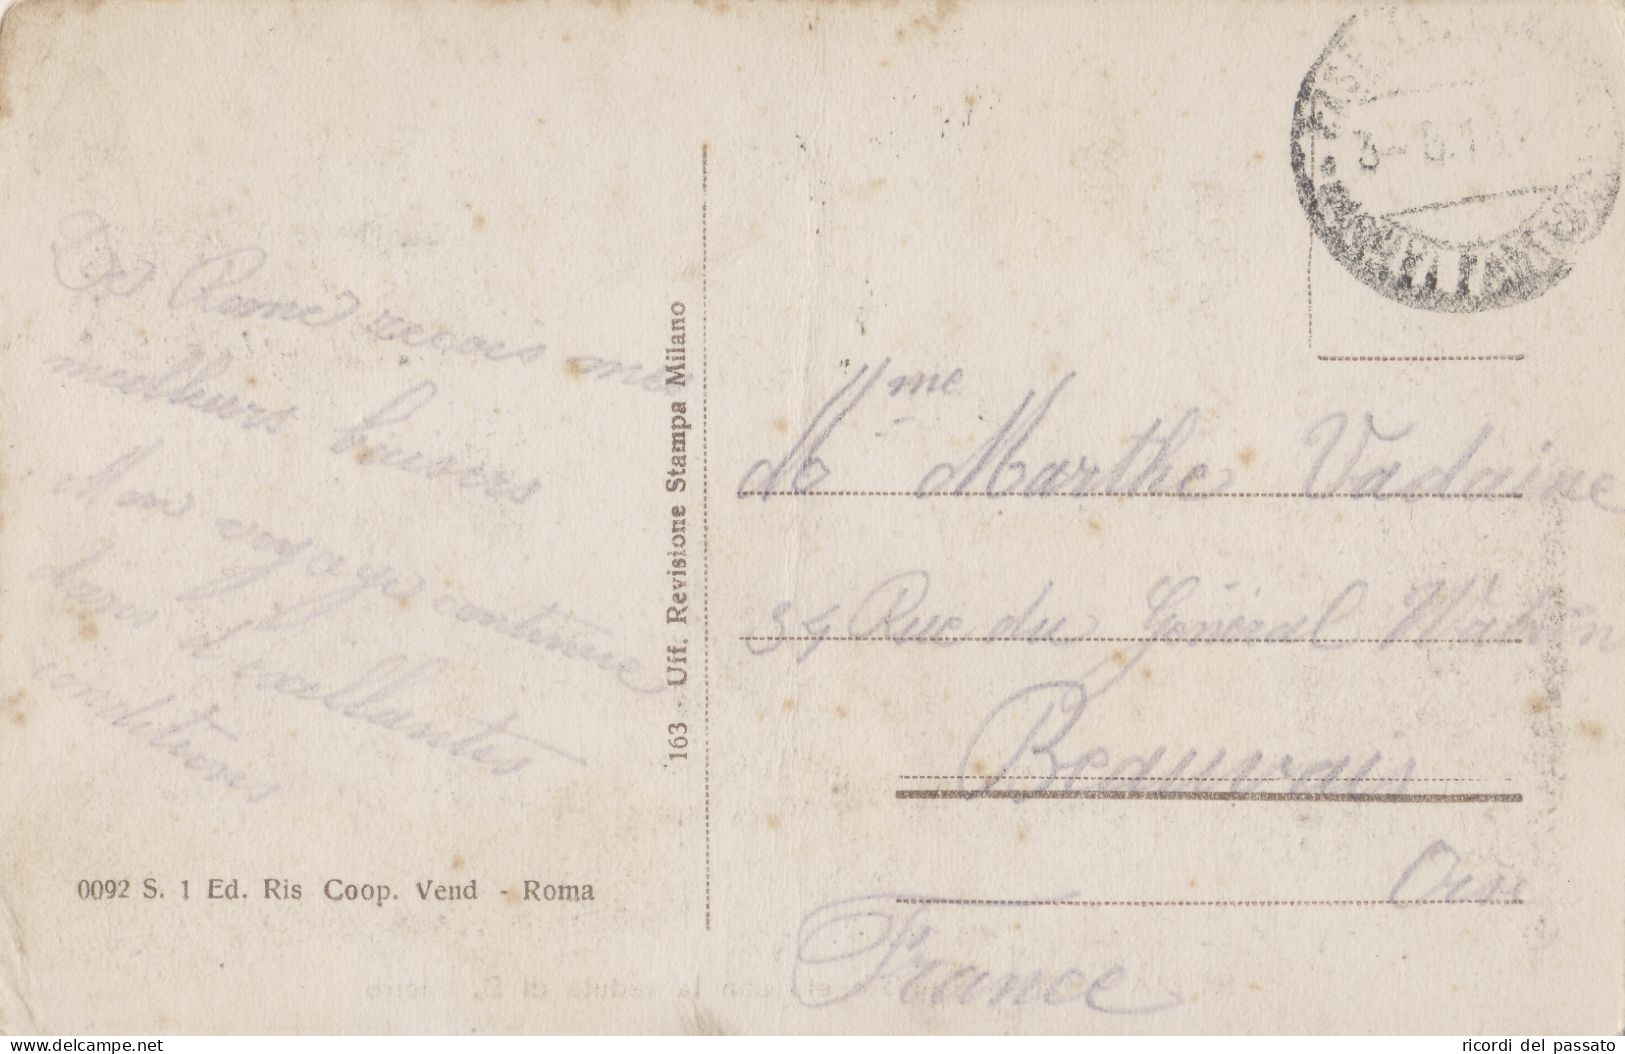 De Rome recois mes
meilleurs baisers
Mon voyage continue
dans d'excellantes
conditions
0092 S. 1 Ed. Ris Coop. Vend - Roma
163 - Uff. Revisione Stampa Milano
3-
Mme
Marthe Vadaine
34 Rue du Général Watrin
Beauvais
Oise
France
delcampe.net
ricordi del passato